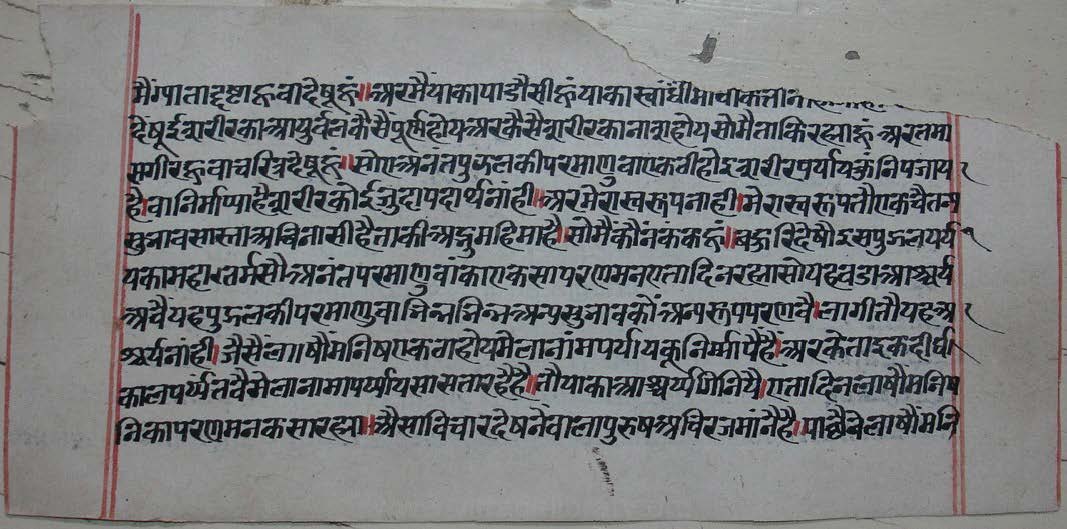 मैंग्याताद्रष्टाहूवादेषूहूं॥अरमैंयाकापाडौसीहूंयाका
देषूईशरीरकाआयुर्बलकैसैंपूर्णहोयअरकैसैशरीरकानाशहोयसोमैताकिरह्याहूं अरतमा
सगीरहूवाचरित्रदेषूहूं॥सोएअनंतपुद्गलकीपरमाणुवाएकठीहोइशरीरपर्यायकूंनिपजाय
है।वानिर्माप्याहैशरीरकोईजुदापदार्थनांही॥अरमेरास्वरूपनाही।मेरास्वरूपतौएकचैतन्य
सुभावसास्ताअविनासीहैताकीअद्भुतमहिमाहै।सोमैंकौंनकूंकहूं॥बहुरिदेषौइसपुद्गलपर्य
यकामहात्तमसौअनंतपरमाणुवांकाएकसापरणमनएतादिनरह्यासोयहबडाआश्चर्य
अबैयहपुद्गलकीपरमाणुवाभिन्नभिन्नअन्यसुभावकोंअन्यरूपपरणवै।लागीतौयहअ
श्चर्यनांही।जैसैंलाषौंमनिषएकठाहोयमेलानांमपर्यायकूनिर्म्मापैंहैं।अरकेताइकदीर्घ
कालपर्य्यंतवैमेलानामापर्य्यायसासतारहैहै॥तौयाकाआश्चर्य्यगिनियै।एतादिनलाषौंमनिष
निकापरणमनकसारह्या॥अैसाविचारदेषनेवालापुरुषअचिरजमांनैहै।पाछैवेलाषौंमनि